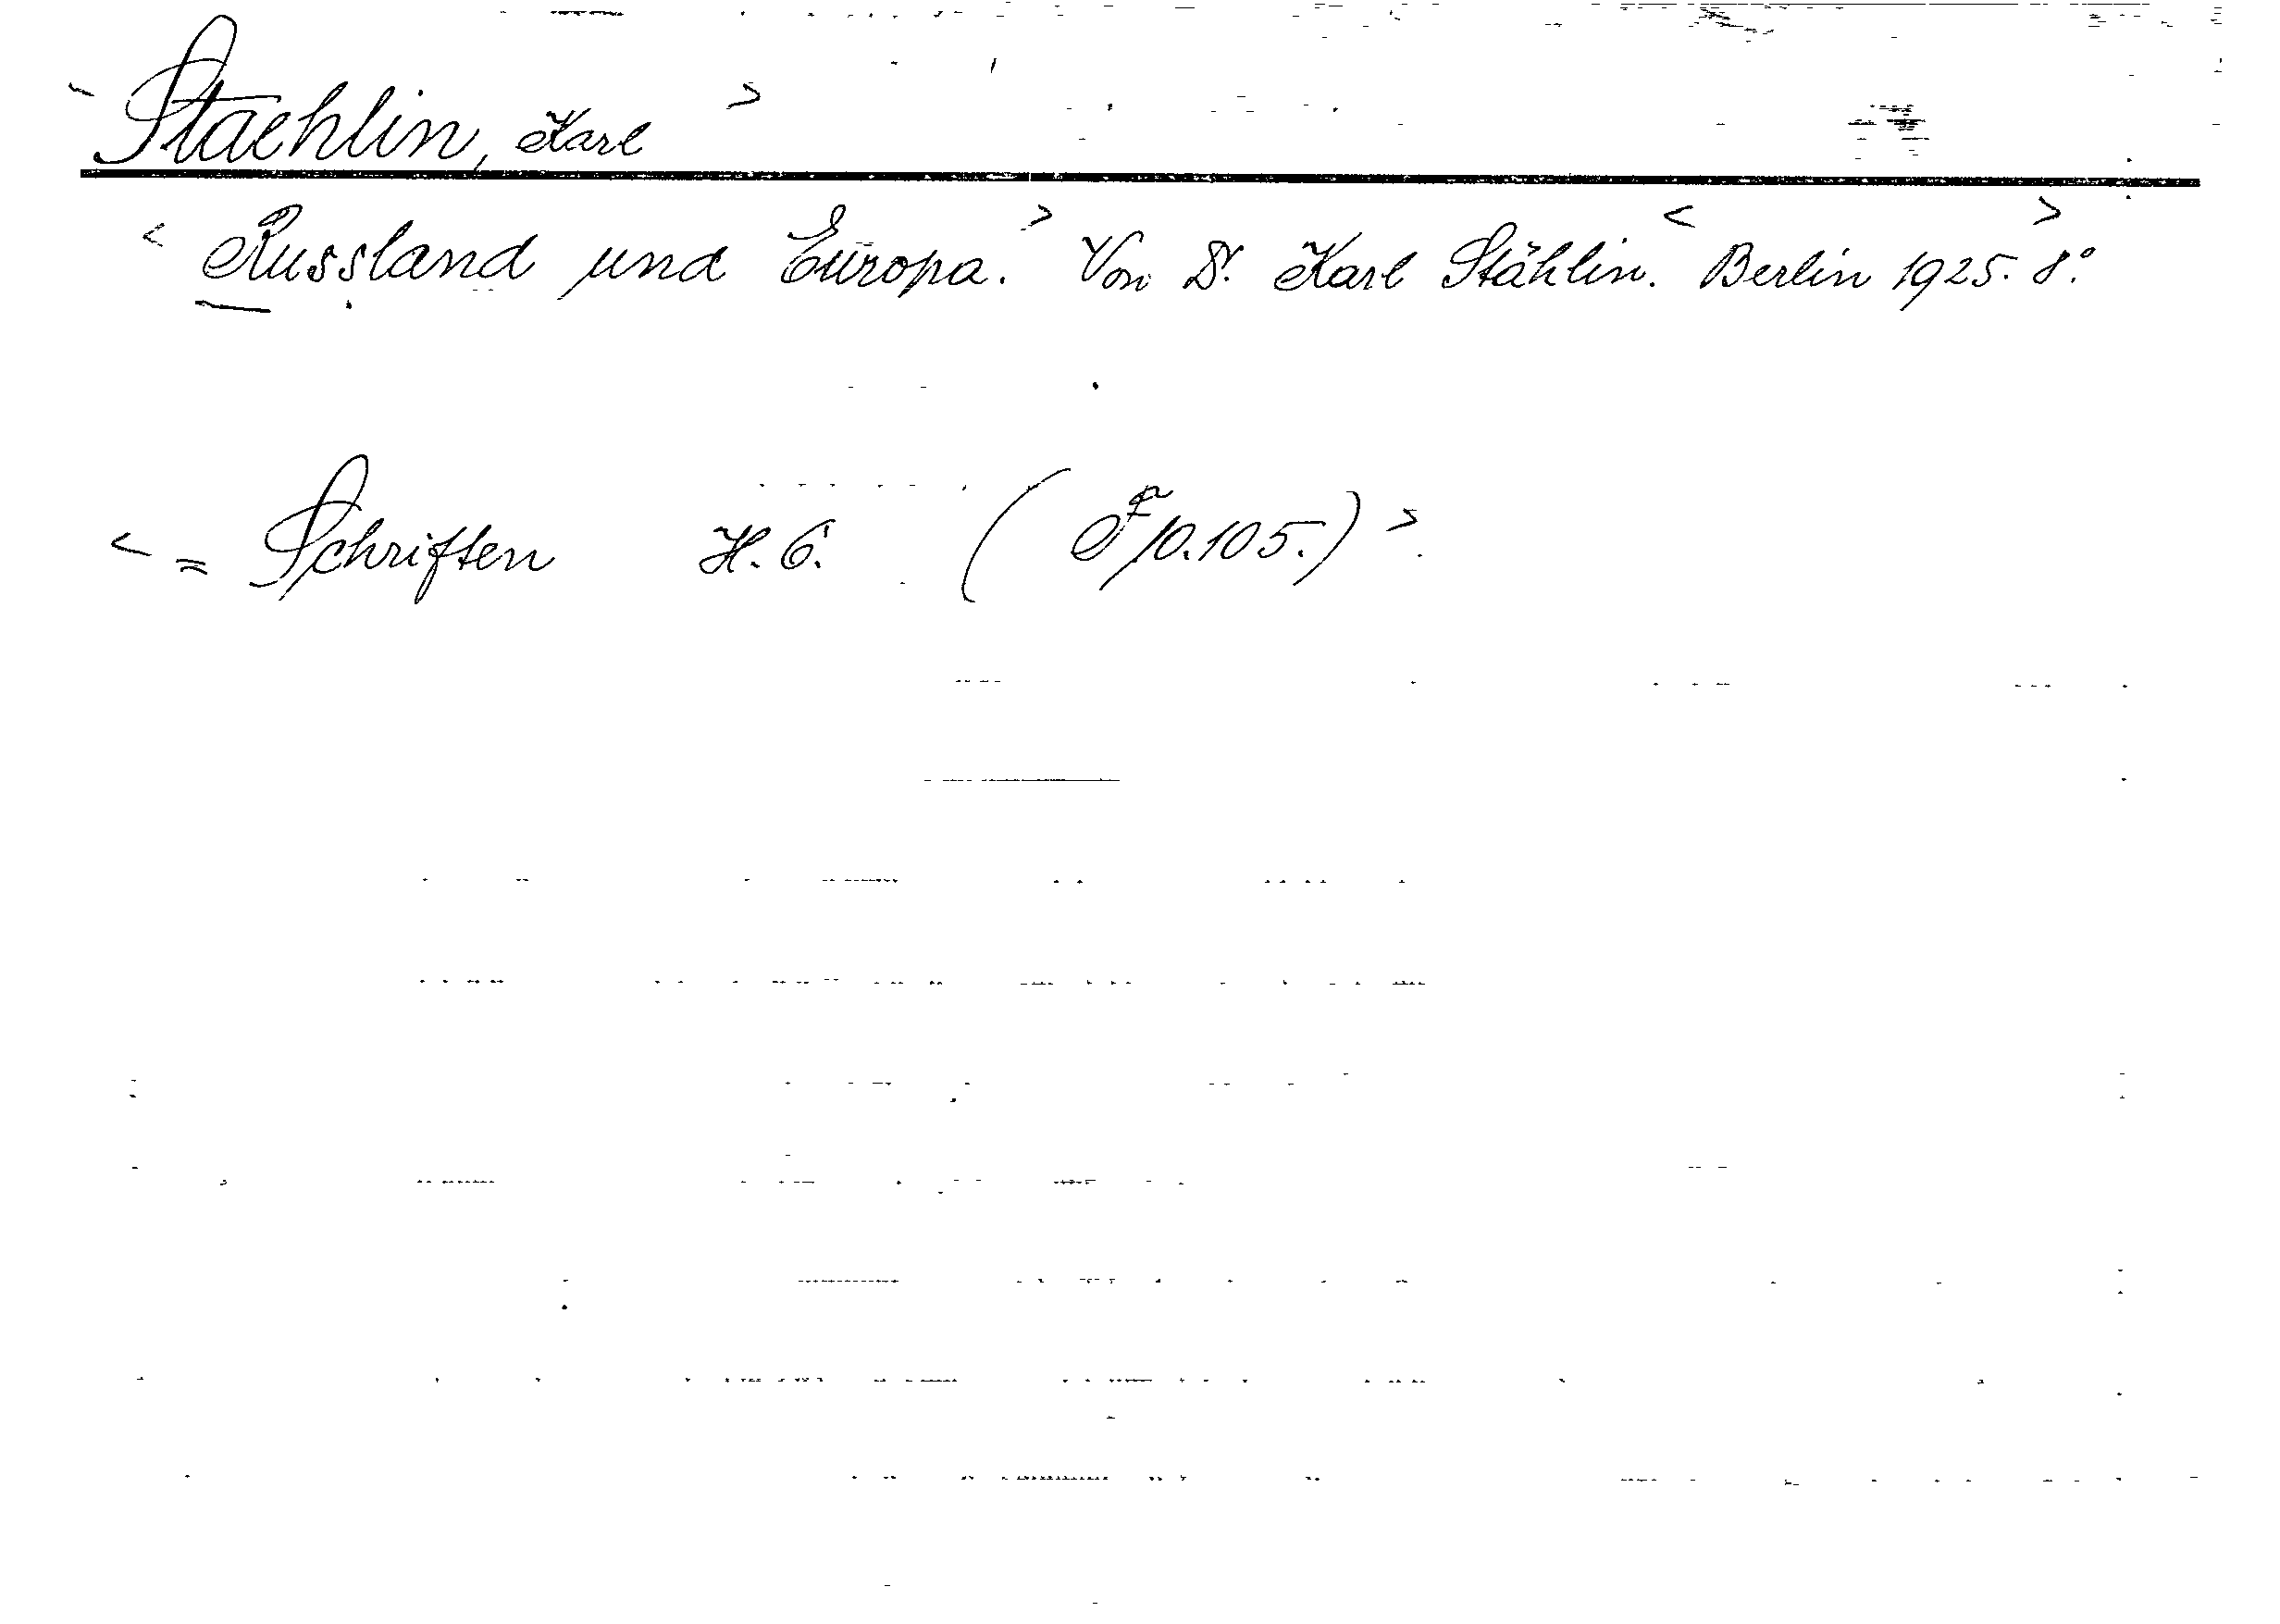 < Staehlin, Karl >
< Russland und Europa. > Von Dr. Karl Stählin. < Berlin 1925. > 8°.
< = Schriften H. 6. ( 10.105.) >